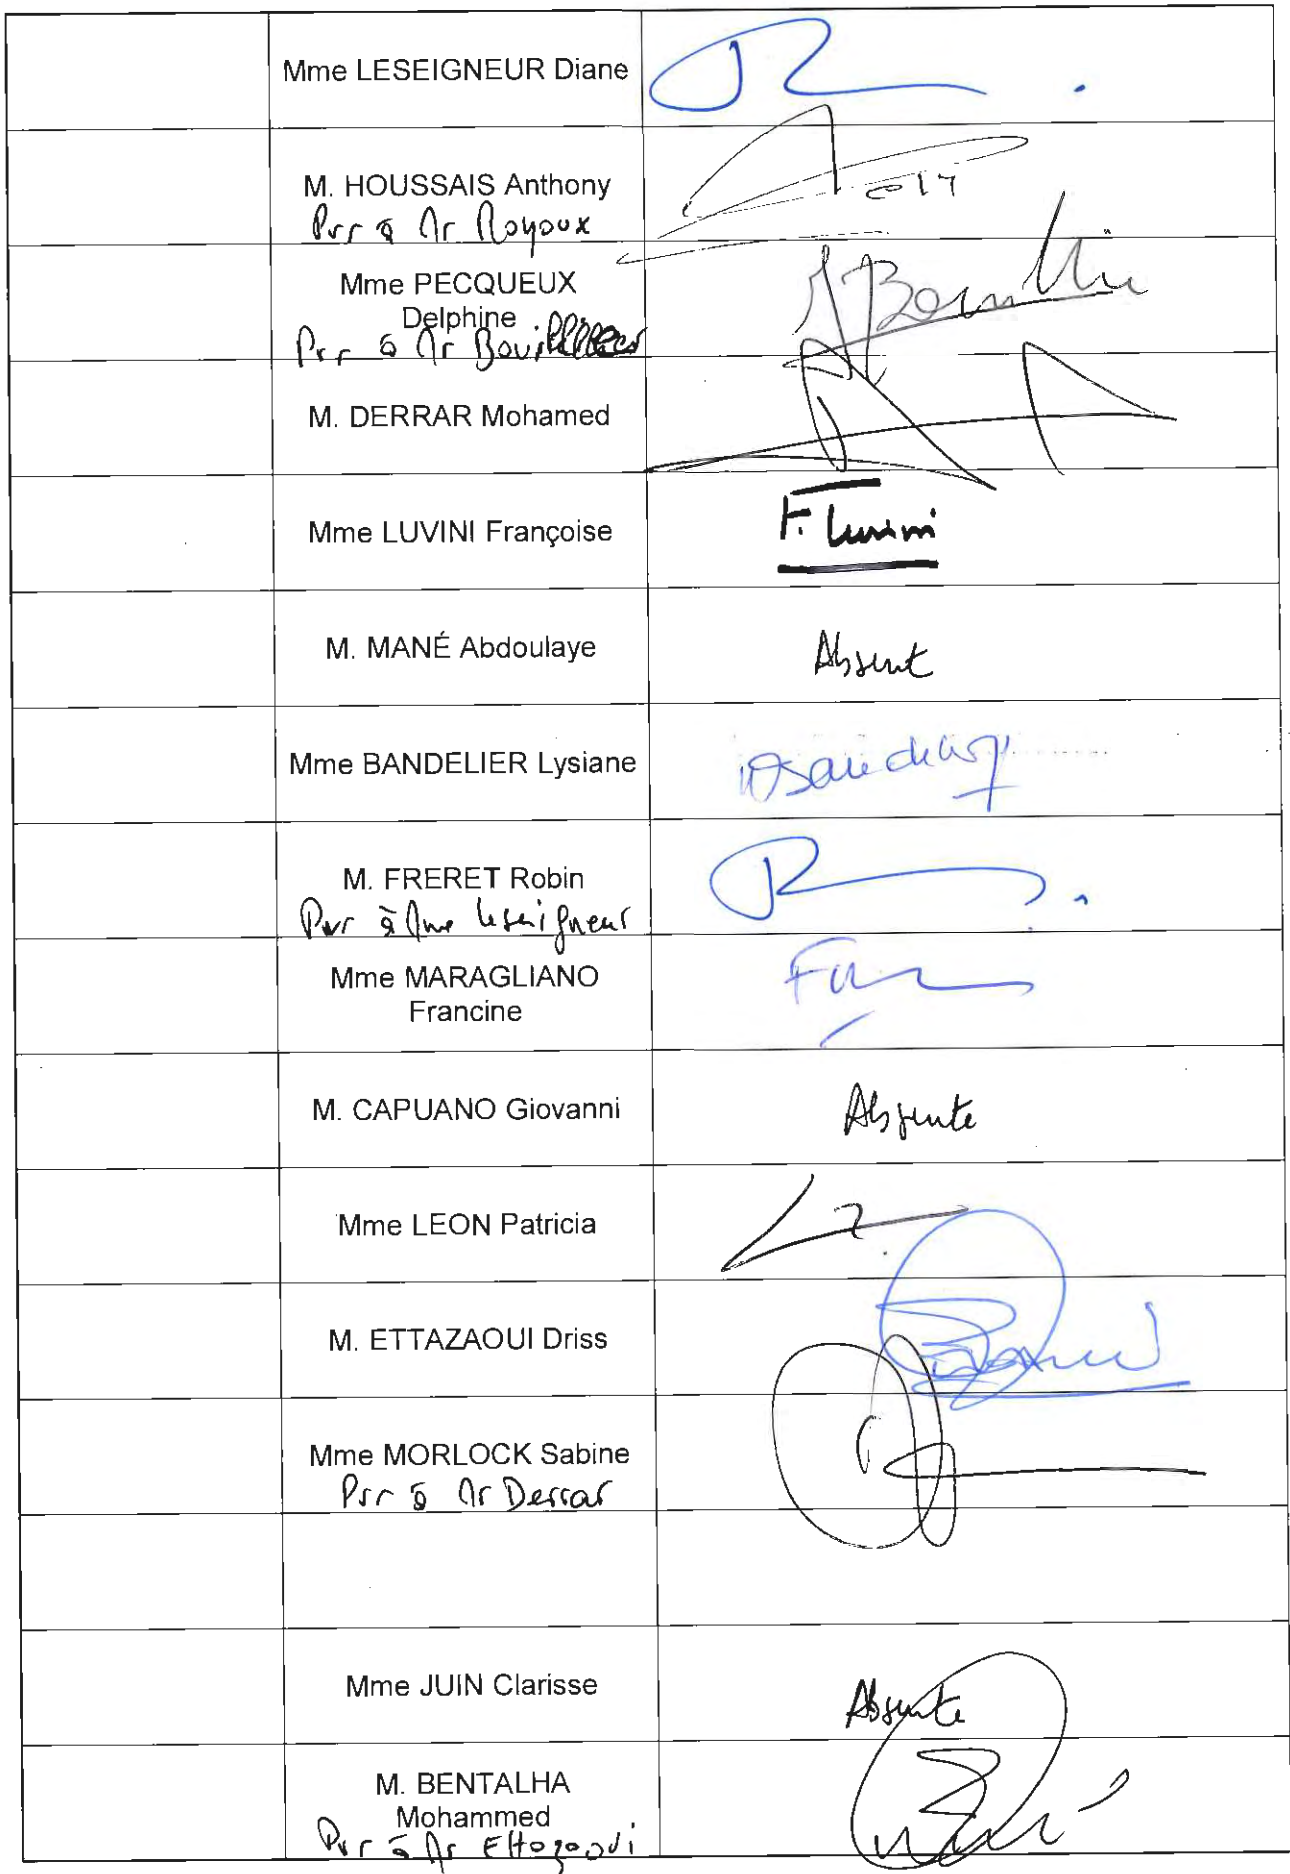 Mme LESEIGNEUR Diane
M. HOUSSAIS Anthony
Pvr à Mr Royoux
Mme PECQUEUX
Delphine
Pvr à Mr
M. DERRAR Mohamed
Mme LUVINI Françoise
F. Luvini
M. MANÉ Abdoulaye
Absent
Mme BANDELIER Lysiane
M. FRERET Robin
Pvr à Mme Leseigneur
Mme MARAGLIANO
Francine
M. CAPUANO Giovanni
Absente
Mme LEON Patricia
M. ETTAZAOUI Driss
Mme MORLOCK Sabine
Pvr à Mr Derrar
Mme JUIN Clarisse
Absente
M. BENTALHA
Mohammed
Pvr à Mr Ettazaoui